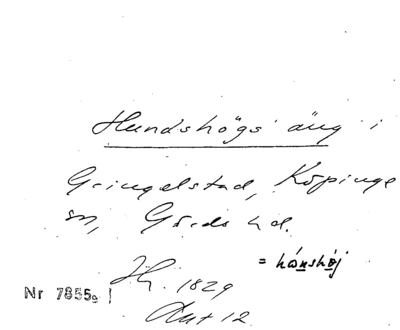 Hundshögs äng i
Gringelstad, Köpinge
sn, Gärds hd.
= hánshøj
Nr 7855
1829
Ant 12.